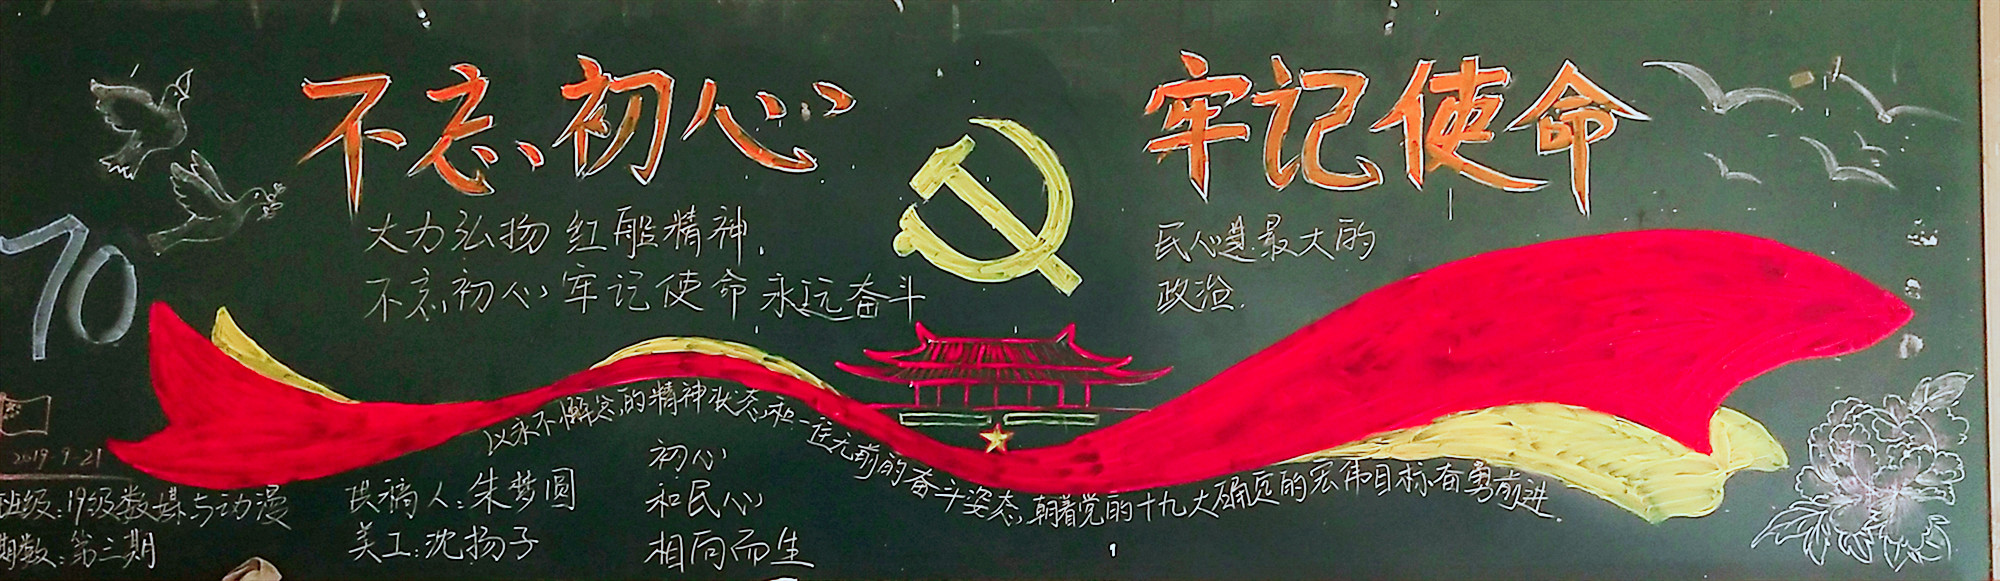 不忘初心 牢记使命
大力弘扬红船精神,
不忘初心牢记使命永远奋斗
民心是最大的
政治.
70
以永不懈怠的精神状态和一往无前的奋斗姿态,朝着党的十九大确定的宏伟目标奋勇前进.
2019 9-21
班级:19级数媒与动漫
期数:第三期
供稿人:朱梦圆
美工:沈扬子
初心
和民心
相向而生